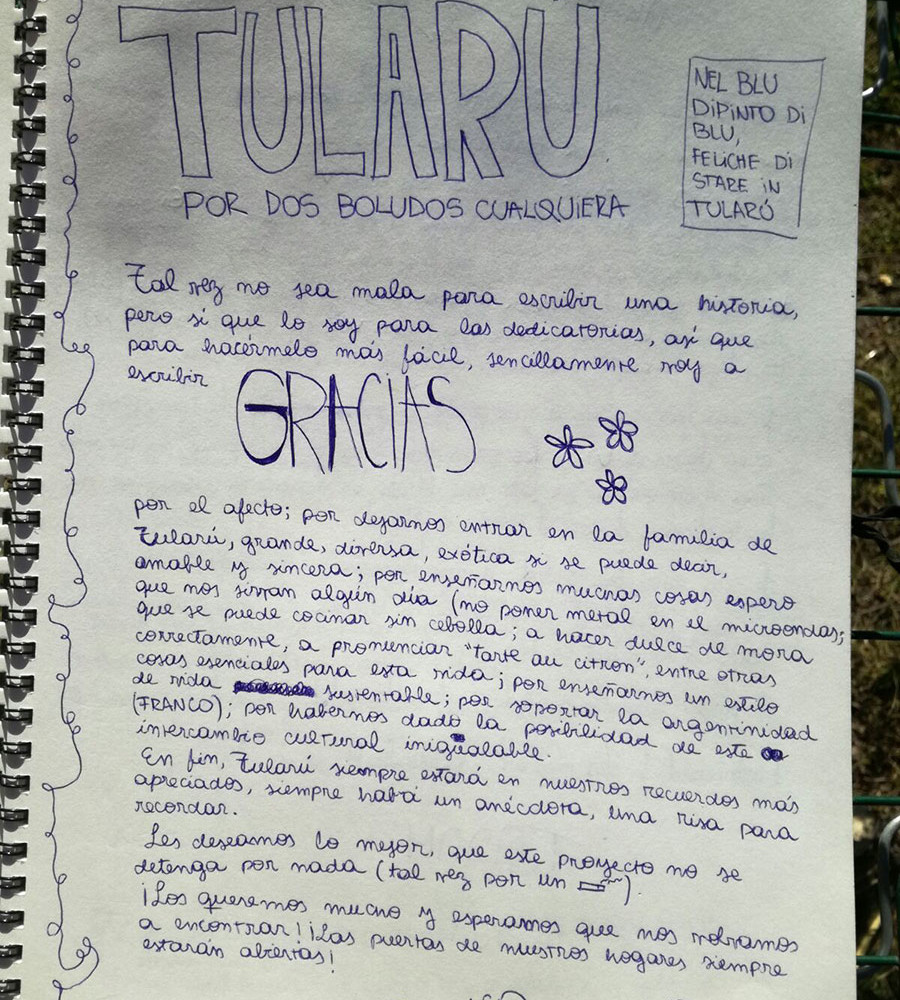 TULARÚ
POR DOS BOLUDOS CUALQUIERA
NEL BLU
DIPINTO DI
BLU,
FELICHE DI
STARE IN
TULARÚ
Tal vez no sea mala para escribir una historia,
pero sí que lo soy para las dedicatorias, así que
para hacérmelo más fácil, sencillamente voy a
escribir GRACIAS
por el afecto; por dejarnos entrar en la familia de
Tularú, grande, diversa, exótica si se puede decir,
amable y sincera; por enseñarnos muchas cosas espero
que nos sirvan algún día (no poner metal en el microondas;
que se puede cocinar sin cebolla; a hacer dulce de mora
correctamente, a pronunciar "tarte au citron", entre otras
cosas esenciales para esta vida; por enseñarnos un estilo
de vida sustentable; por soportar la argentinidad
(FRANCO); por habernos dado la posibilidad de este
intercambio cultural inigualable.
En fin, Tularú siempre estará en nuestros recuerdos más
apreciados, siempre habrá un anécdota, una risa para
recordar.
Les deseamos lo mejor, que este proyecto no se
detenga por nada (tal vez por un ).
¡Los queremos mucho y esperamos que nos volvamos
a encontrar! ¡Las puertas de nuestros hogares siempre
estarán abiertas!